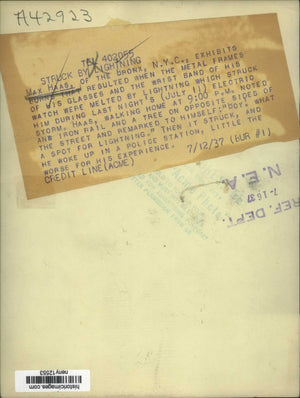 A42923
402055
STRUCK BY LIGHTNING
MAX HAAS, OF THE BRONX, N.Y.C., EXHIBITS
BURNS THAT RESULTED WHEN THE METAL FRAMES
OF HIS GLASSES AND THE WRIST BAND OF HIS
WATCH WERE MELTED BY LIGHTNING WHICH STRUCK
HIM DURING LAST NIGHT'S (JULY 11) ELECTRIC
STORM. HAAS, WALKING HOME AT 9:00 P.M. NOTED
AN IRON RAIL AND A TREE ON OPPOSITE SIDES OF
THE STREET AND REMARKED TO HIMSELF: "BOY, WHAT
A SPOT FOR LIGHTNING." THEN IT STRUCK, AND
HE WOKE UP IN A POLICE STATION, LITTLE THE
WORSE FOR HIS EXPERIENCE.
CREDIT LINE (ACME) 7/12/37 (BUR #1)
REF. DEPT.
7-16-37
N. E. A.
historicimages.com
neny12553